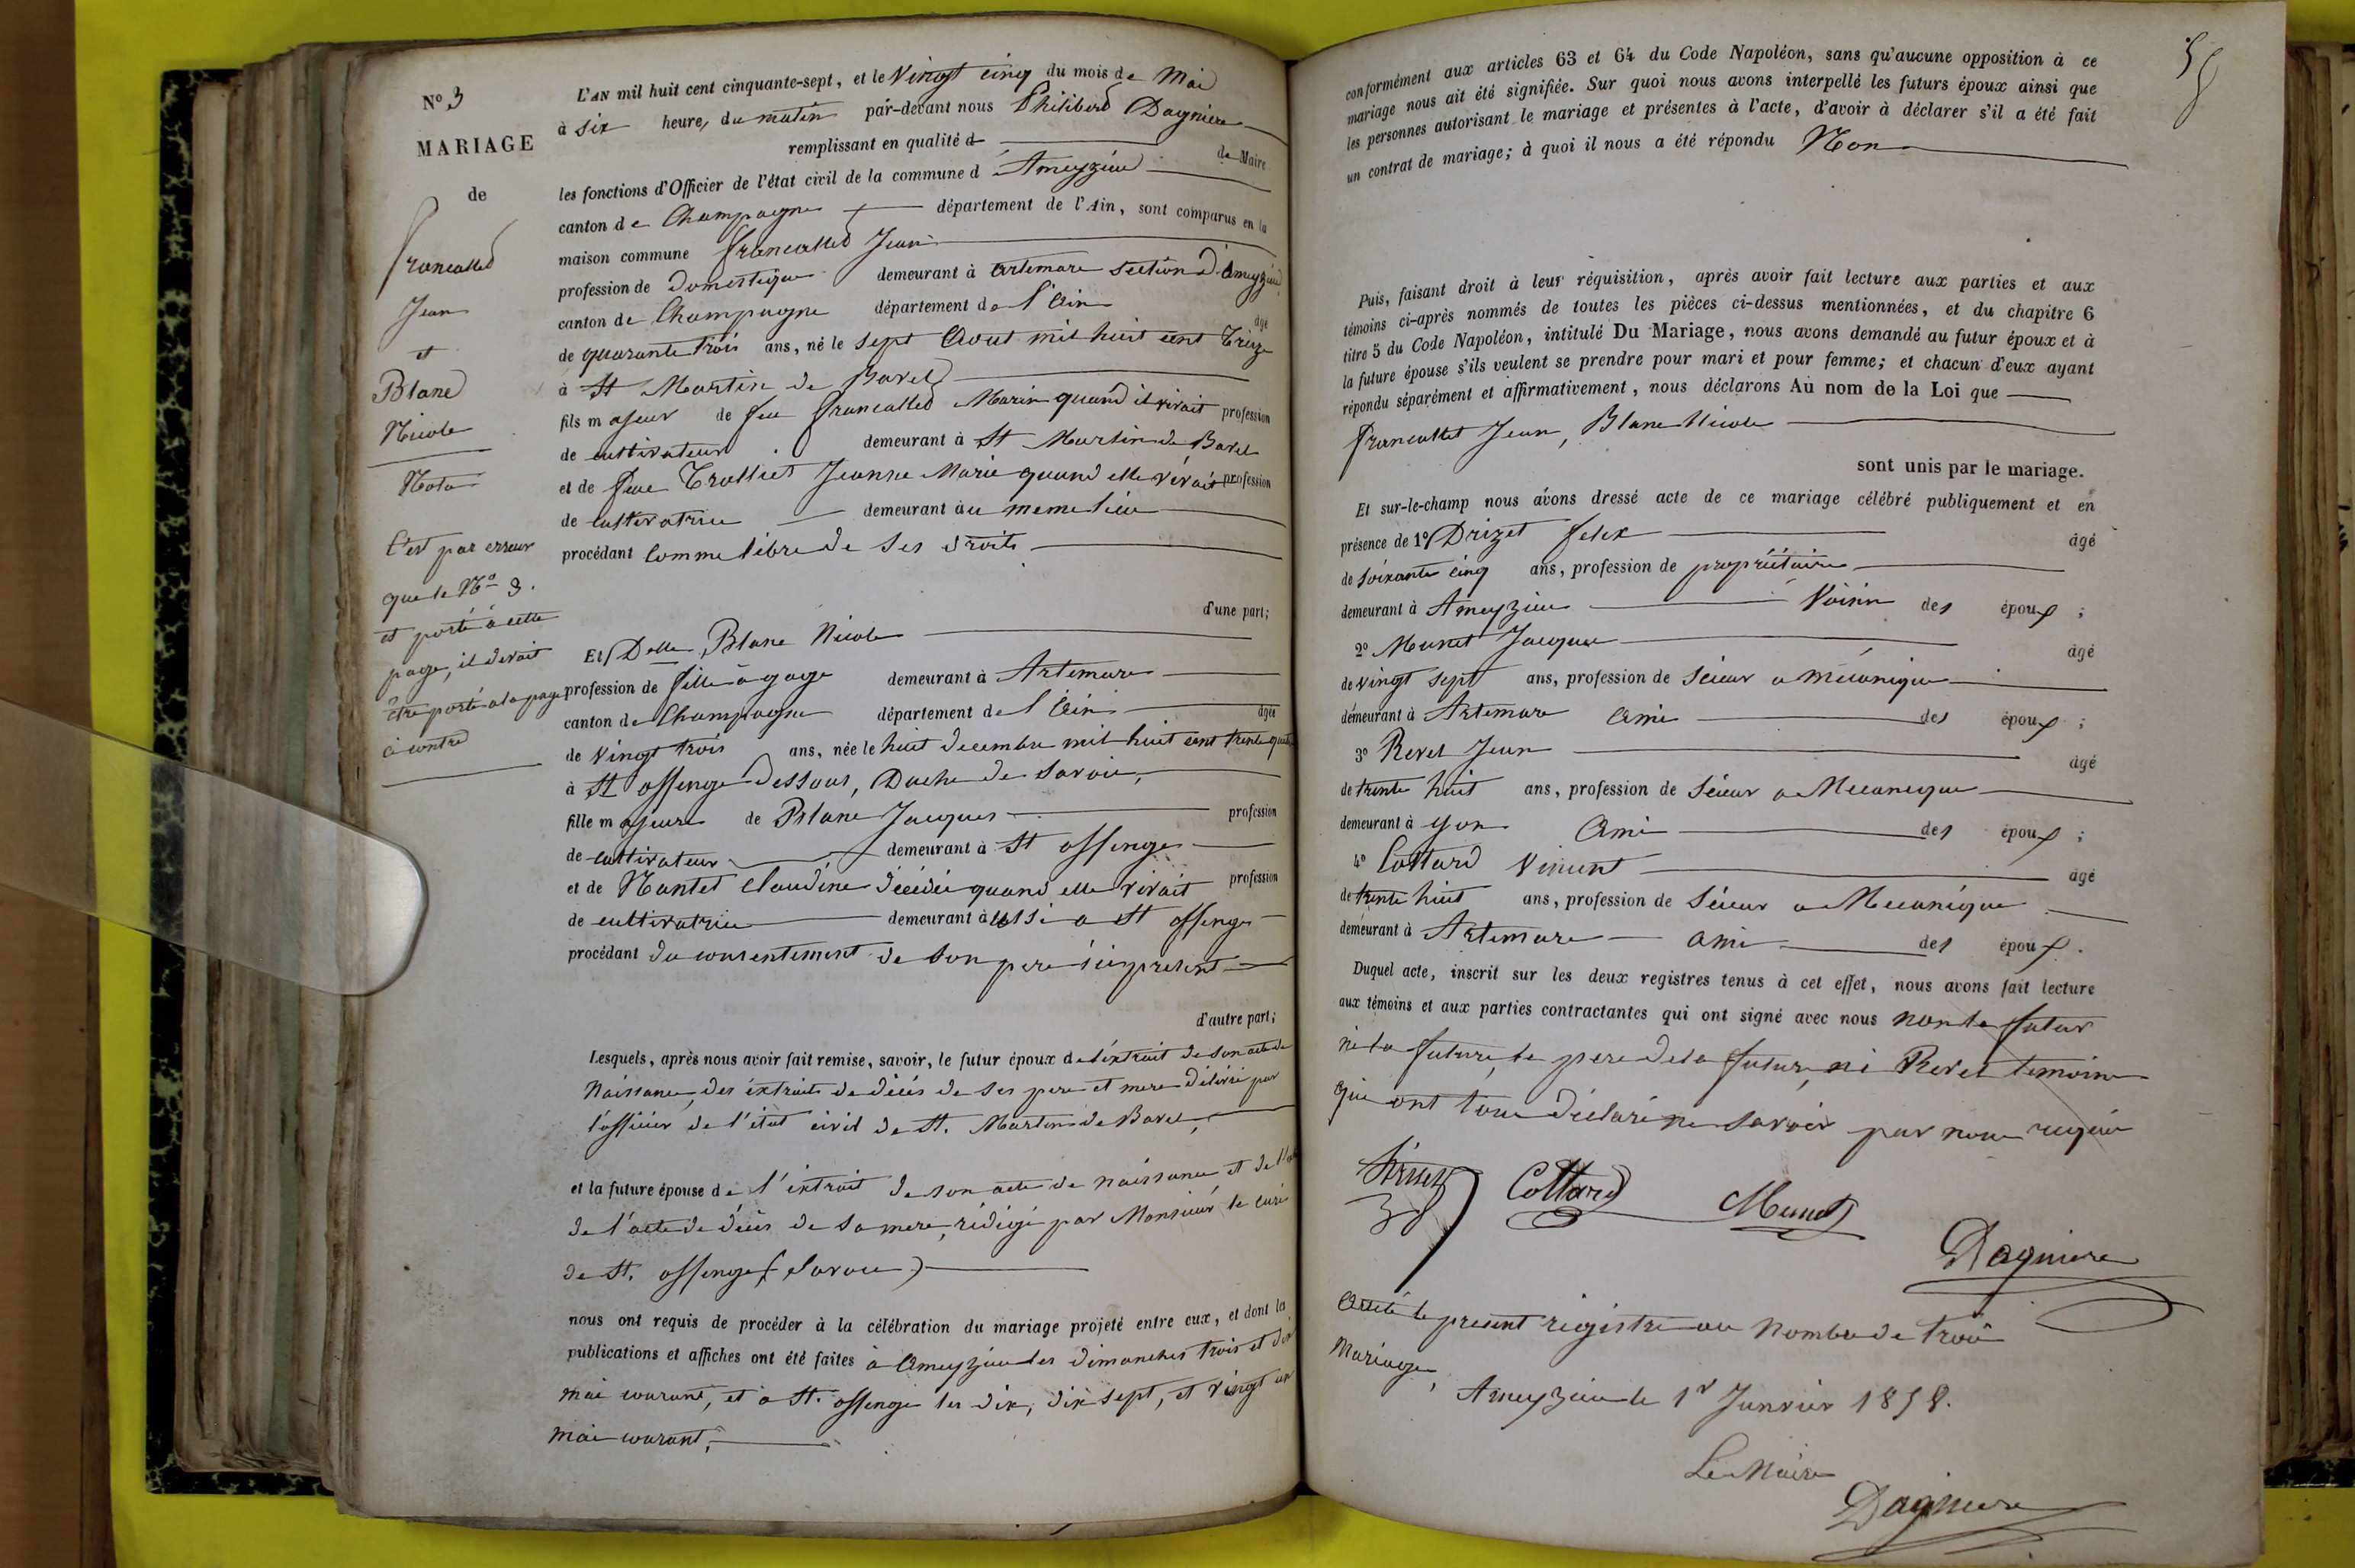 N° 3
MARIAGE
de
francallet
Jean
et
Blanc
Nicole
Nota
C'est par erreur
que le N° 3.
est porté à cette
page, il devait
être porté à la page
ci contre
L'AN mil huit cent cinquante-sept, et le Vingt cinq du mois de Mai
à six heures du matin par-devant nous Philibert Dagniere
remplissant en qualité de Maire
les fonctions d'Officier de l'état civil de la commune d'Ameyzieu
canton de Champagne département de l'Ain, sont comparus en la
maison commune francallet Jean
profession de Domestique demeurant à Artemare section d'Ameyzieu
canton de Champagne département de l'Ain âgé
de quarante trois ans, né le sept Aout mil huit cent Treize
à St Martin de Bavel
fils majeur de feu francallet Marin quand il vivait profession
de cultivateur demeurant à St Martin de Bavel
et de feue Trolliet Jeanne Marie quand elle vivait profession
de cultivatrice demeurant au meme lieu
procédant comme libre de ses droits
d'une part;
Et Delle Blanc Nicole
profession de fille à gage demeurant à Artemare
canton de Champagne département de l'Ain âgée
de vingt trois ans, née le huit decembre mil huit cent trente quatre
à St offenge Dessous, Duché de Savoie,
fille majeure de Blanc Jacques profession
de cultivateur demeurant à St offenge
et de Nantet claudine décédée quand elle vivait profession
de cultivatrice demeurant aussi a St offenge
procédant du consentement de son pere ici present
d'autre part;
Lesquels, après nous avoir fait remise, savoir, le futur époux de l'extrait de son acte de
Naissance, des extraits de décès de ses pere et mere délivré par
l'officier de l'état civil de St. Martin de Bavel,
et la future épouse de l'extrait de son acte de naissance, et de
de l'acte de décès de sa mere, rédigé par Monsieur le curé
de St. offenge (Savoie)
nous ont requis de procéder à la célébration du mariage projeté entre eux, et dont la
publications et affiches ont été faites à Ameyzieu les dimanches trois et dix
mai courant, et à St. offenge les dix, dix sept, et vingt un
mai courant,
conformément aux articles 63 et 64 du Code Napoléon, sans qu'aucune opposition à ce
mariage nous ait été signifiée. Sur quoi nous avons interpellé les futurs époux ainsi que
les personnes autorisant le mariage et présentes à l'acte, d'avoir à déclarer s'il a été fait
un contrat de mariage; à quoi il nous a été répondu Non
Puis, faisant droit à leur réquisition, après avoir fait lecture aux parties et aux
témoins ci-après nommés de toutes les pièces ci-dessus mentionnées, et du chapitre 6
titre 5 du Code Napoléon, intitulé Du Mariage, nous avons demandé au futur époux et à
la future épouse s'ils veulent se prendre pour mari et pour femme; et chacun d'eux ayant
répondu séparément et affirmativement, nous déclarons Au nom de la Loi que
francallet Jean, Blanc Nicole
sont unis par le mariage.
Et sur-le-champ nous avons dressé acte de ce mariage célébré publiquement et en
présence de 1° Drizet felix âgé
de soixante cinq ans, profession de propriétaire
demeurant à Ameyzieu Voisin des époux;
2° Meunet Jacques âgé
de vingt sept ans, profession de scieur a mécanique
demeurant à Artemare ami des époux;
3° Revel Jean âgé
de trente huit ans, profession de scieur a Mecanique
demeurant à yon Ami des époux;
4° Cottard Vincent âgé
de trente huit ans, profession de scieur a Mecanique
demeurant à Artemare ami des époux.
Duquel acte, inscrit sur les deux registres tenus à cet effet, nous avons fait lecture
aux témoins et aux parties contractantes qui ont signé avec nous non le futur
ni la future, le pere de la future, ni Revel temoin
qui ont tous déclaré ne savoir par nous requis
Cottard Meunet
Dagniere
Arrêté le present régistre au nombre de trois
Mariages,
Ameyzieu le 1er Janvier 1858.
Le Maire
Dagniere